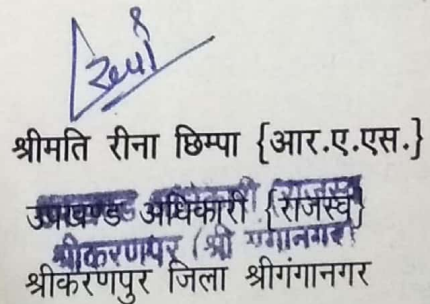 श्रीमति रीना छिम्पा {आर.ए.एस.}
उपखण्ड अधिकारी {राजस्व}
श्रीकरणपुर (श्री गंगानगर)
श्रीकरणपुर जिला श्रीगंगानगर